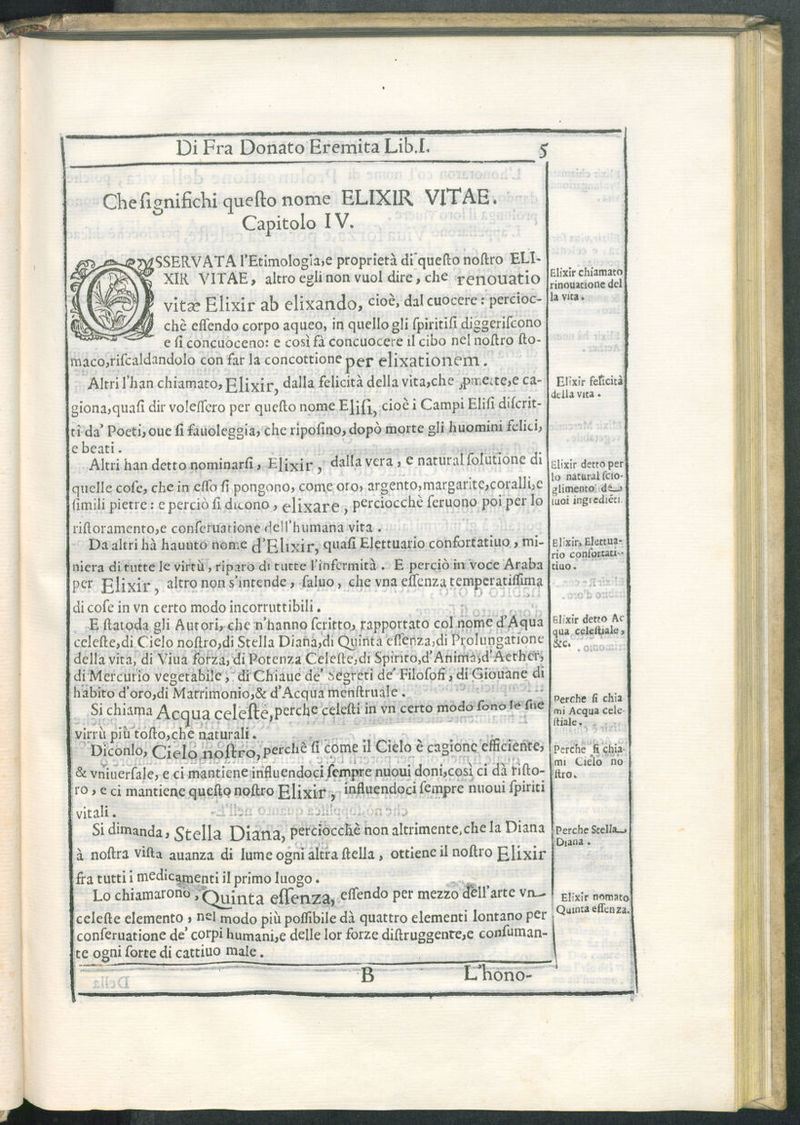 Di Fra Donato Eremita Lib.I. 5
Che ſignifichi queſto nome ELIXIR VITAE.
Capitolo IV.
OSSERVATA l'Etimologia,e proprietà di queſto noſtro ELI-
XIR VITAE, altro egli non vuol dire, che renouatio
vitæ Elixir ab elixando, cioè, dal cuocere: percioc-
chè eſſendo corpo aqueo, in quello gli ſpiriti ſi diggeriſcono
e ſi concuoceno: e così fà concuocere il cibo nel noſtro ſto-
maco,riſcaldandolo con far la concottione per elixationem.
Altri l'han chiamato, Elixir, dalla felicità della vita,che ꝓmette,e ca-
giona,quaſi dir voleſſero per queſto nome Eliſi, cioè i Campi Eliſi diſcrit-
ti da' Poeti, oue ſi fauoleggia, che ripoſino, dopò morte gli huomini felici,
e beati.
Altri han detto nominarſi, Elixir, dalla vera, e natural ſolutione di
quelle coſe, che in eſſo ſi pongono, come oro, argento,margarite,coralli,e
ſimili pietre: e perciò ſi dicono, elixare, perciocchè ſeruono poi per lo
riſtoramento,e conſeruatione dell'humana vita.
Da altri hà hauuto nome d'Elixir, quaſi Elettuario confortatiuo, mi-
niera di tutte le virtù, riparo di tutte l'infermità. E perciò in voce Araba
per Elixir, altro non s'intende, ſaluo, che vna eſſenza temperatiſſima
di coſe in vn certo modo incorruttibili.
E ſtatoda gli Autori, che n'hanno ſcritto, rapportato col nome d'Aqua
celeſte,di Cielo noſtro,di Stella Diana,di Quinta eſſenza,di Prolungatione
della vita, di Viua forza, di Potenza Celeſte,di Spirito,d'Anima,d'Aether,
di Mercurio vegetabile, di Chiaue de' Segreti de' Filoſofi, di Giouane di
habito d'oro,di Matrimonio,& d'Acqua menſtruale.
Si chiama Acqua celeſte,perche celeſti in vn certo modo ſono le ſue
virtù più toſto,che naturali.
Diconlo, Cielo noſtro, perchè ſi come il Cielo è cagione efficiente,
& vniuerſale, e ci mantiene influendoci ſempre nuoui doni,così ci dà riſto-
ro, e ci mantiene queſto noſtro Elixir, influendoci ſempre nuoui ſpiriti
vitali.
Si dimanda, Stella Diana, perciocchè non altrimente,che la Diana
à noſtra viſta auanza di lume ogni altra ſtella, ottiene il noſtro Elixir
fra tutti i medicamenti il primo luogo.
Lo chiamarono, Quinta eſſenza, eſſendo per mezzo dell'arte vn
celeſte elemento, nel modo più poſſibile dà quattro elementi lontano per
conſeruatione de' corpi humani,e delle lor forze diſtruggente,e conſuman-
te ogni ſorte di cattiuo male.
B L'hono-
Elixir chiamato
rinouatione del
la vita.
Elixir felicità
della vita.
Elixir detto per
lo natural ſcio-
glimento de
ſuoi ingrediẽti.
Elixir, Elettua-
rio confortati-
tiuo.
Elixir detto Ac
qua celeſtiale,
&c.
Perche ſi chia
mi Acqua cele
ſtiale.
Perche ſi chia-
mi Cielo no
ſtro.
Perche Stella
Diana.
Elixir nomato
Quinta eſſenza.